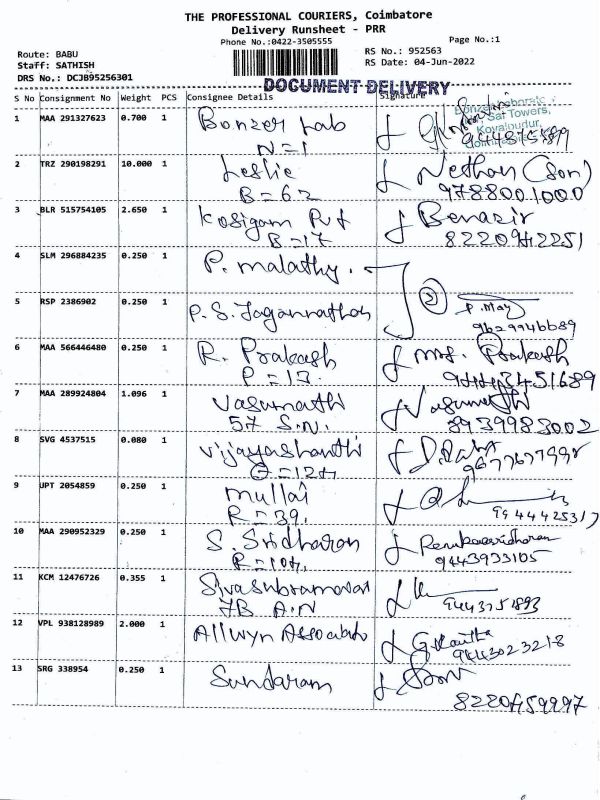 THE PROFESSIONAL COURIERS, Coimbatore
Delivery Runsheet - PRR
Phone No.:0422-3505555
Page No.:1
Route: BABU
Staff: SATHISH
DRS No.: DCJB95256301
RS No.: 952563
RS Date: 04-Jun-2022
DOCUMENT DELIVERY
S No Consignment No Weight PCS Consignee Details Signature
1 MAA 291327623 0.700 1 Bonzer Lab
N=1
Sai Towers,
Kovaipudur,
2 TRZ 290198291 10.000 1 Leslie Nethan (Son)
B=62 9788001000
3 BLR 515754105 2.650 1 Kosigam Pvt Benazir
B=17 8220942251
4 SLM 296884235 0.250 1 P. Malathy.
5 RSP 2386902 0.250 1 P. S. Jagannathan 2 P. May
9629946689
6 MAA 566446480 0.250 1 R. Prakash Mrs. Prakash
P=13. 9443451689
7 MAA 289924804 1.096 1 Vasumathi Vasumathi
57 S.N. 8939983002
8 SVG 4537515 0.080 1 Vijayashanthi
9677677995
9 UPT 2054859 0.250 1 Mullai
R=39. 9944425317
10 MAA 290952329 0.250 1 S. Sridharan
R=104. 9443933105
11 KCM 12476726 0.355 1 Sivasubramanian
7B A.N 9443751893
12 VPL 938128989 2.000 1 Allwyn Associates G. Kavitha
9443023218
13 SRG 338954 0.250 1 Sundaram
8220459997